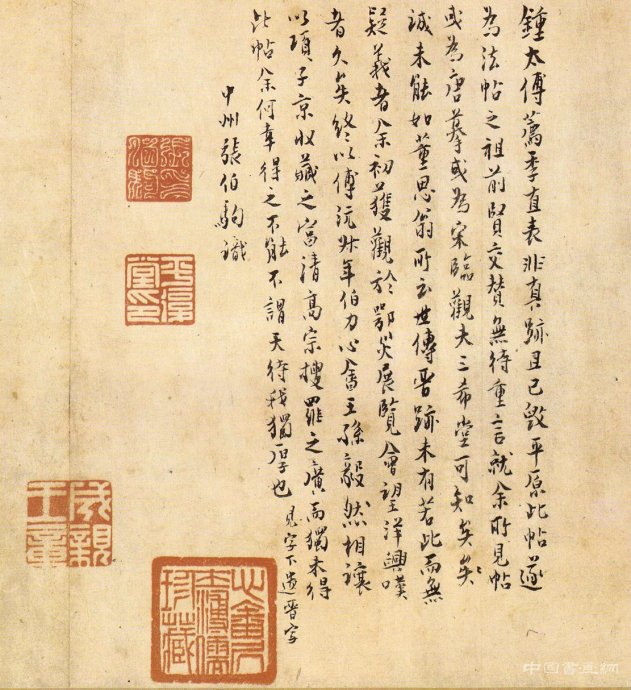 鍾太傅薦季直表非真跡且已毀平原此帖遂
為法帖之祖前賢交贊無待重言就余所見帖
或為唐摹或為宋臨觀夫三希堂可知矣矣
誠未能如董思翁所云世傳晉跡未有若此而無
疑義者余初獲觀於鄂災展覽會望洋興嘆
者久矣終以傅沅叔年伯力心畬王孫毅然相讓
以項子京收藏之富清高宗搜羅之廣而獨未得
此帖余何幸得之不能不謂天待我獨厚也 見字下遺晉字
中州張伯駒識
平復堂印
成親王章
溥儒珍藏
中国書画網